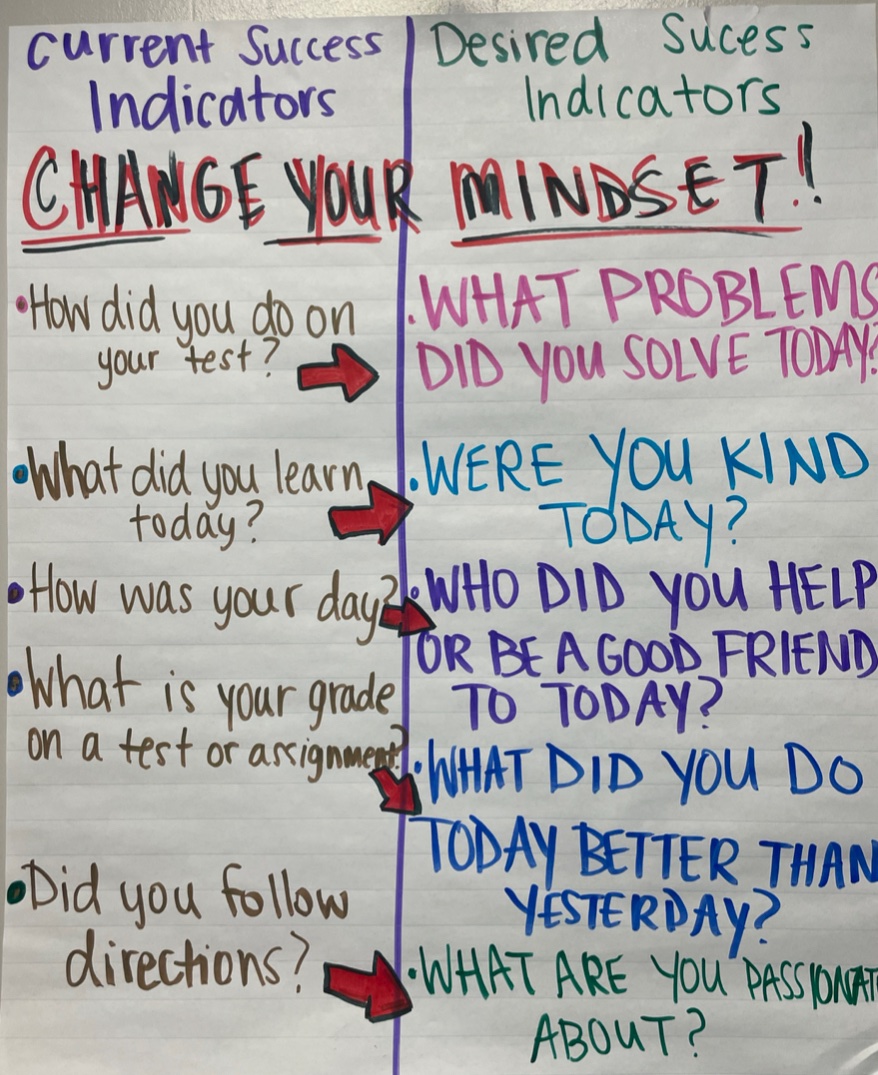 Current Success
Indicators
Desired Sucess
Indicators
CHANGE YOUR MINDSET!!
•How did you do on
your test?
•WHAT PROBLEMS
DID YOU SOLVE TODAY?
•What did you learn
today?
•WERE YOU KIND
TODAY?
•How was your day?
•WHO DID YOU HELP
OR BE A GOOD FRIEND
TO TODAY?
•What is your grade
on a test or assignment?
•WHAT DID YOU DO
TODAY BETTER THAN
YESTERDAY?
•Did you follow
directions?
•WHAT ARE YOU PASSIONAT
ABOUT?